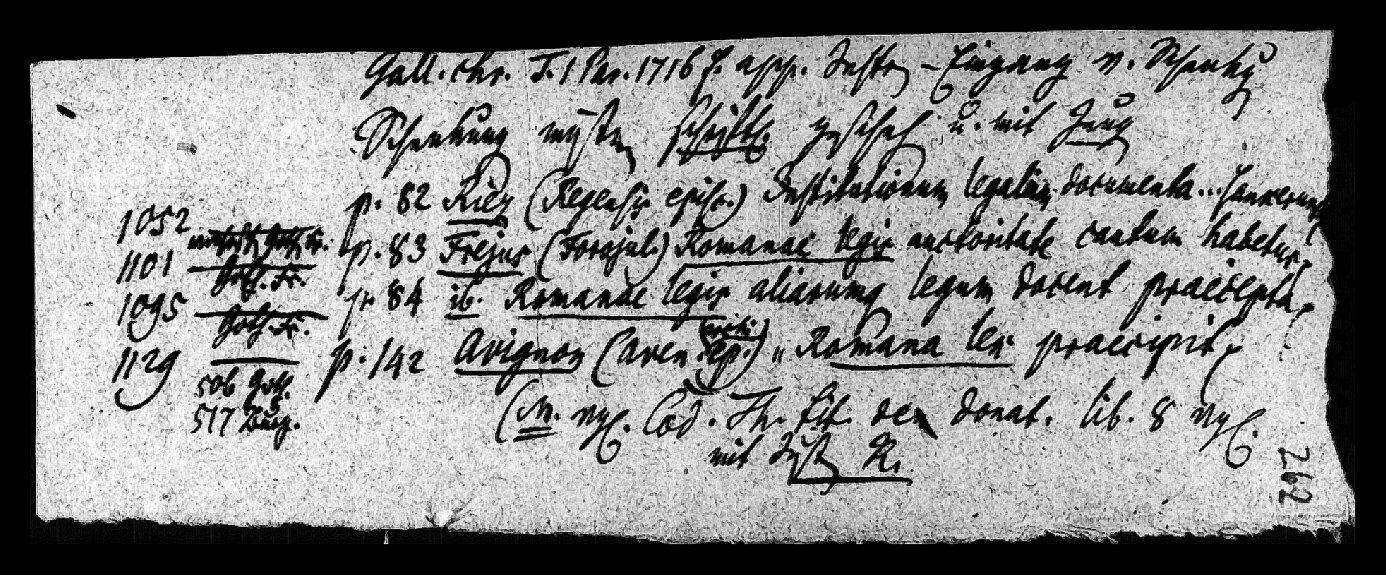 Gall. chr. T. 1 Par. 1716 f. app. Instr. – Eingang v. Schenkg
Schenkung mußten schriftl. geschehen u. mit Zeug
1052 p. 82 Riez (Regensis episc.) Institutionum legalium documenta...
1101 p. 83 Frejus (Forojul.) Romanae legis auctoritate cautum habetur
Goth. Fr.
1095 p. 84 ib. Romanae legis aliarumq legum docent praecepta
Goth. Fr.
1129 p. 142 Avignon (Aven. ep.) „ Romana lex praecipit
506 Goth.
517 Burg.
(M. vgl. Cod. Th. tit. de donat. lib. 8 vgl.
mit Just. R.
262